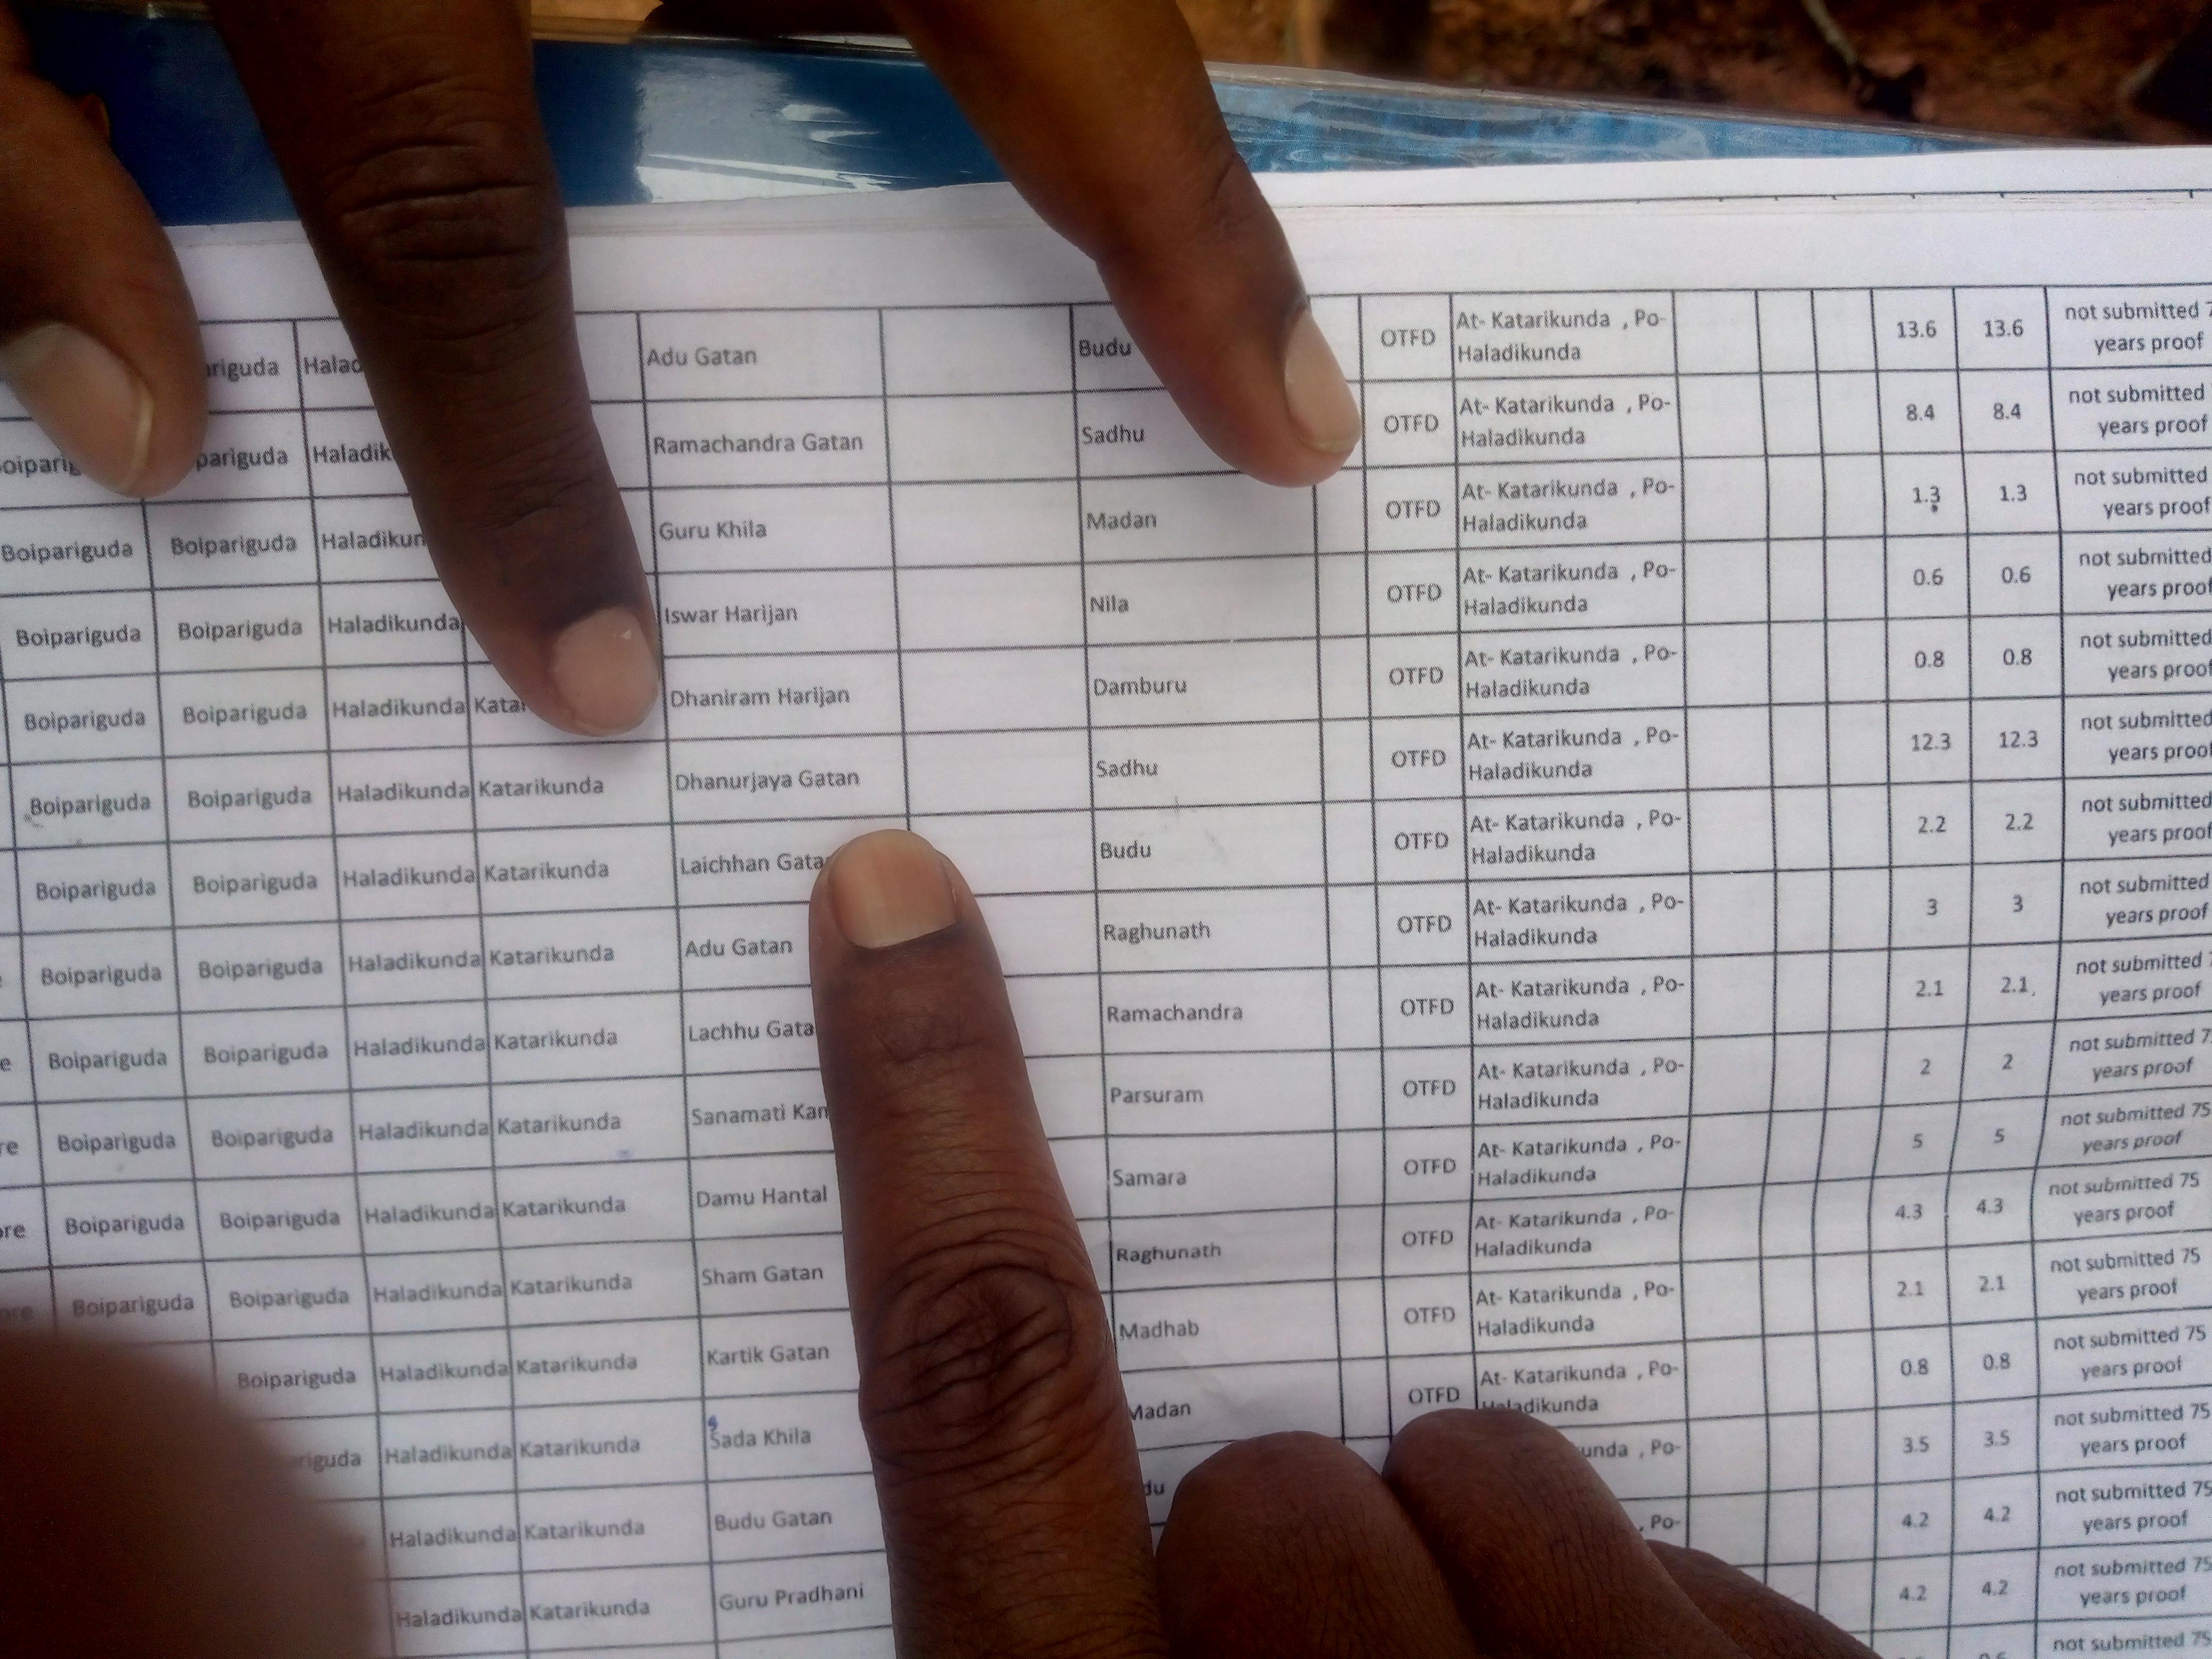 Adu Gatan Budu OTFD At- Katarikunda , Po- 13.6 13.6 not submitted
Haladikunda years proof
Ramachandra Gatan Sadhu OTFD At- Katarikunda , Po- 8.4 8.4 not submitted
Haladikunda years proof
Boipariguda Boipariguda Guru Khila Madan OTFD At- Katarikunda , Po- 1.3 1.3 not submitted
Haladikunda years proof
Boipariguda Boipariguda Haladikunda Iswar Harijan Nila OTFD At- Katarikunda , Po- 0.6 0.6 not submitted
Haladikunda years proof
Boipariguda Boipariguda Haladikunda Dhaniram Harijan Damburu OTFD At- Katarikunda , Po- 0.8 0.8 not submitted
Haladikunda years proof
Boipariguda Boipariguda Haladikunda Katarikunda Dhanurjaya Gatan Sadhu OTFD At- Katarikunda , Po- 12.3 12.3 not submitted
Haladikunda years proof
Boipariguda Boipariguda Haladikunda Katarikunda Laichhan Budu OTFD At- Katarikunda , Po- 2.2 2.2 not submitted
Haladikunda years proof
Boipariguda Boipariguda Haladikunda Katarikunda Adu Gatan Raghunath OTFD At- Katarikunda , Po- 3 3 not submitted
Haladikunda years proof
Boipariguda Boipariguda Haladikunda Katarikunda Lachhu Ramachandra OTFD At- Katarikunda , Po- 2.1 2.1 not submitted
Haladikunda years proof
Boipariguda Boipariguda Haladikunda Katarikunda Sanamati Parsuram OTFD At- Katarikunda , Po- 2 2 not submitted
Haladikunda years proof
Boipariguda Boipariguda Haladikunda Katarikunda Damu Hantal Samara OTFD At- Katarikunda , Po- 5 5 not submitted 75
Haladikunda years proof
Boipariguda Boipariguda Haladikunda Katarikunda Sham Gatan Raghunath OTFD At- Katarikunda , Po- 4.3 4.3 not submitted 75
Haladikunda years proof
Boipariguda Haladikunda Katarikunda Kartik Gatan Madhab OTFD At- Katarikunda , Po- 2.1 2.1 not submitted 75
Haladikunda years proof
Haladikunda Katarikunda Sada Khila Madan OTFD At- Katarikunda , Po- 0.8 0.8 not submitted 75
years proof
Haladikunda Katarikunda Budu Gatan , Po- 3.5 3.5 not submitted 75
years proof
Haladikunda Katarikunda Guru Pradhani , Po- 4.2 4.2 not submitted 75
years proof
4.2 4.2 not submitted 75
years proof
not submitted 75